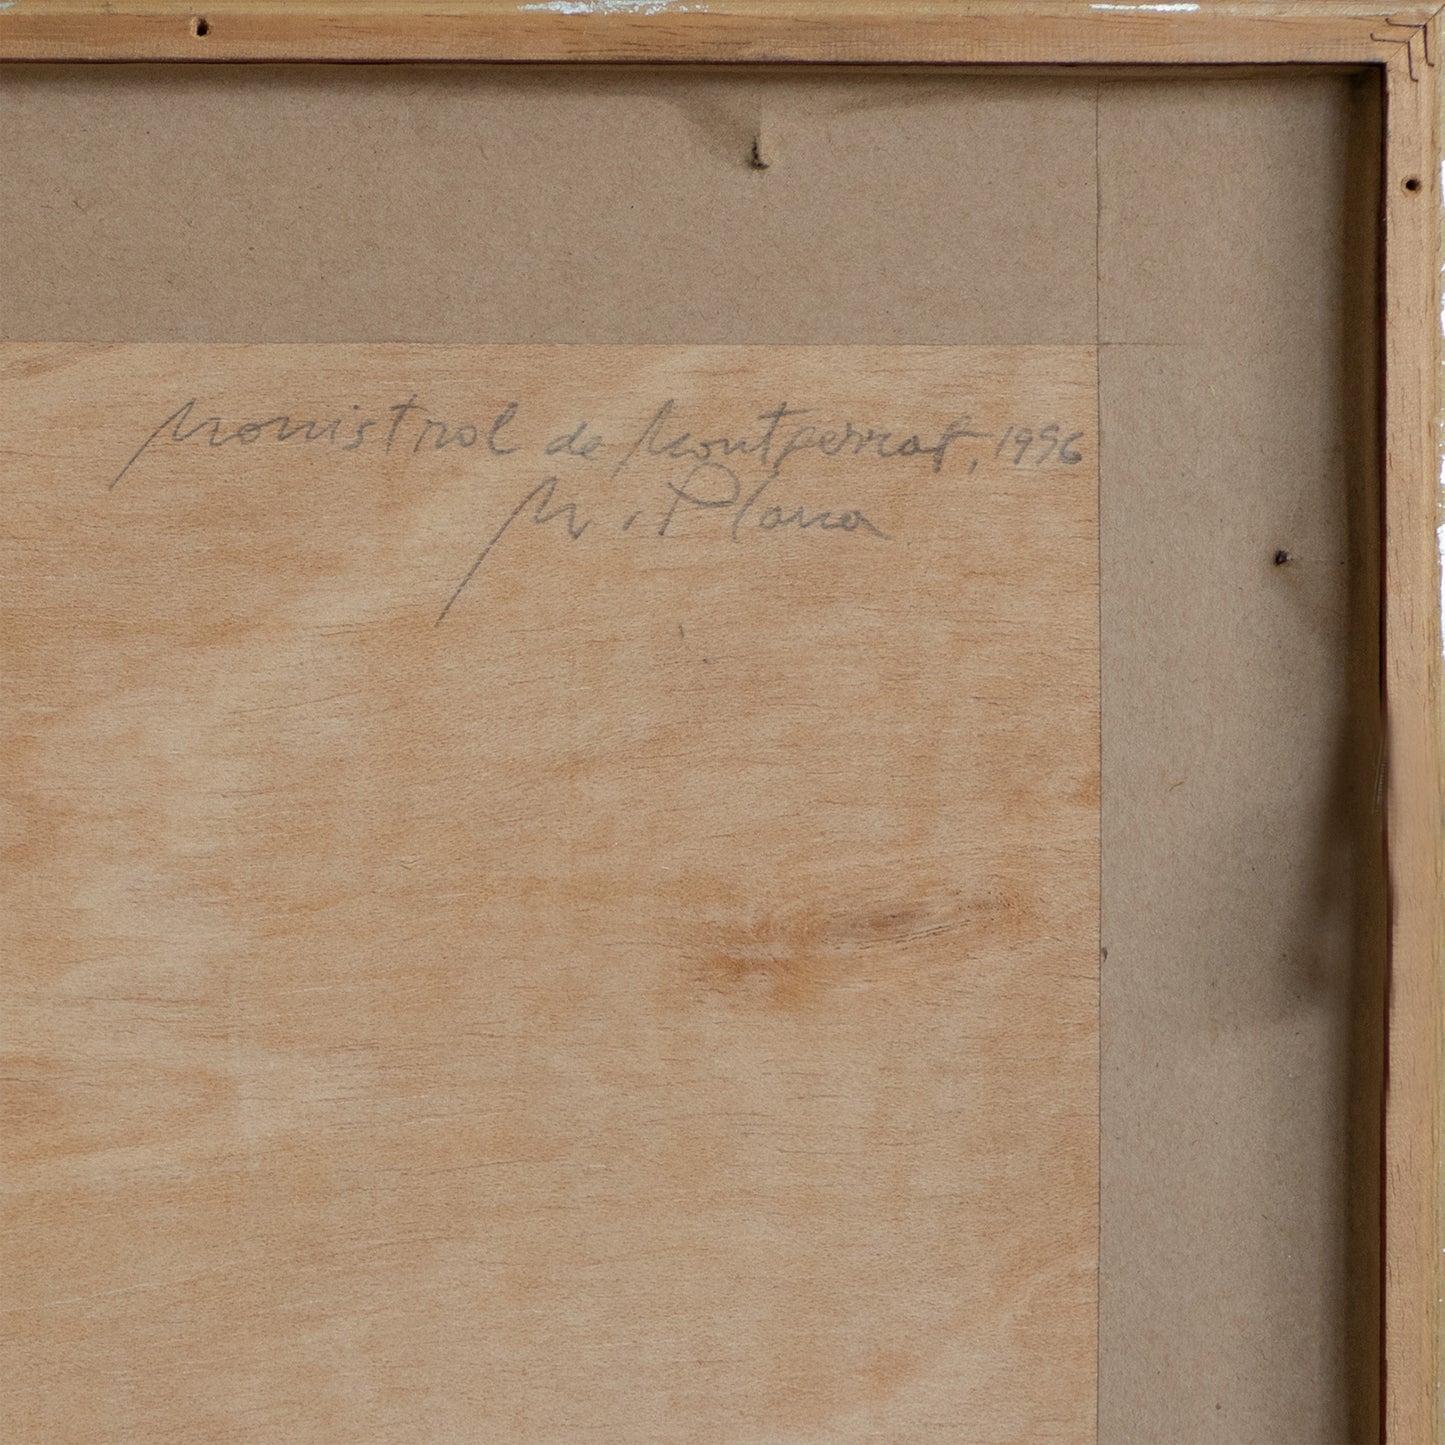 Monistrol de Montserrat, 1996
M. Plana